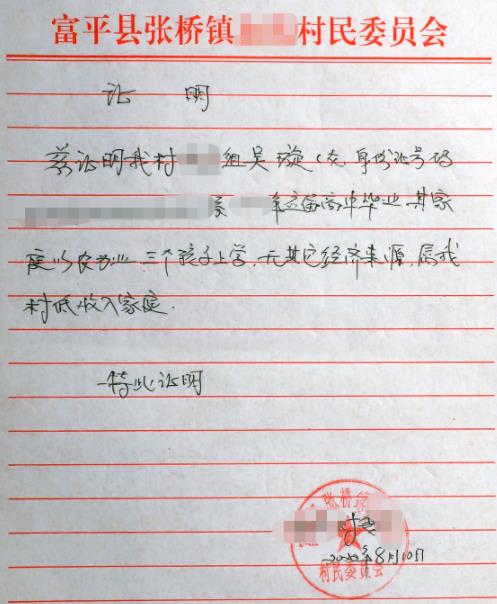 富平县张桥镇 村民委员会
证 明
兹证明我村 组吴璇(女,身份证号码
系 年应届高中毕业,其家
庭以农为业,三个孩子上学,无其它经济来源,属我
村低收入家庭.
特此证明
张桥镇
8月10日
村民委员会